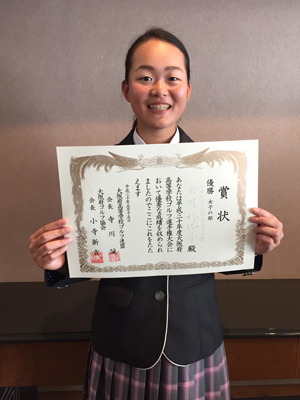 賞状
優勝 女子の部
殿
あなたは平成二十年度大阪府
高等学校ゴルフ選手権大会に
おいて優秀な成績を収められ
ましたのでここにこれをたた
えます
大阪府高等学校ゴルフ連盟
会長 寺川
大阪府ゴルフ協会
会長 小寺新